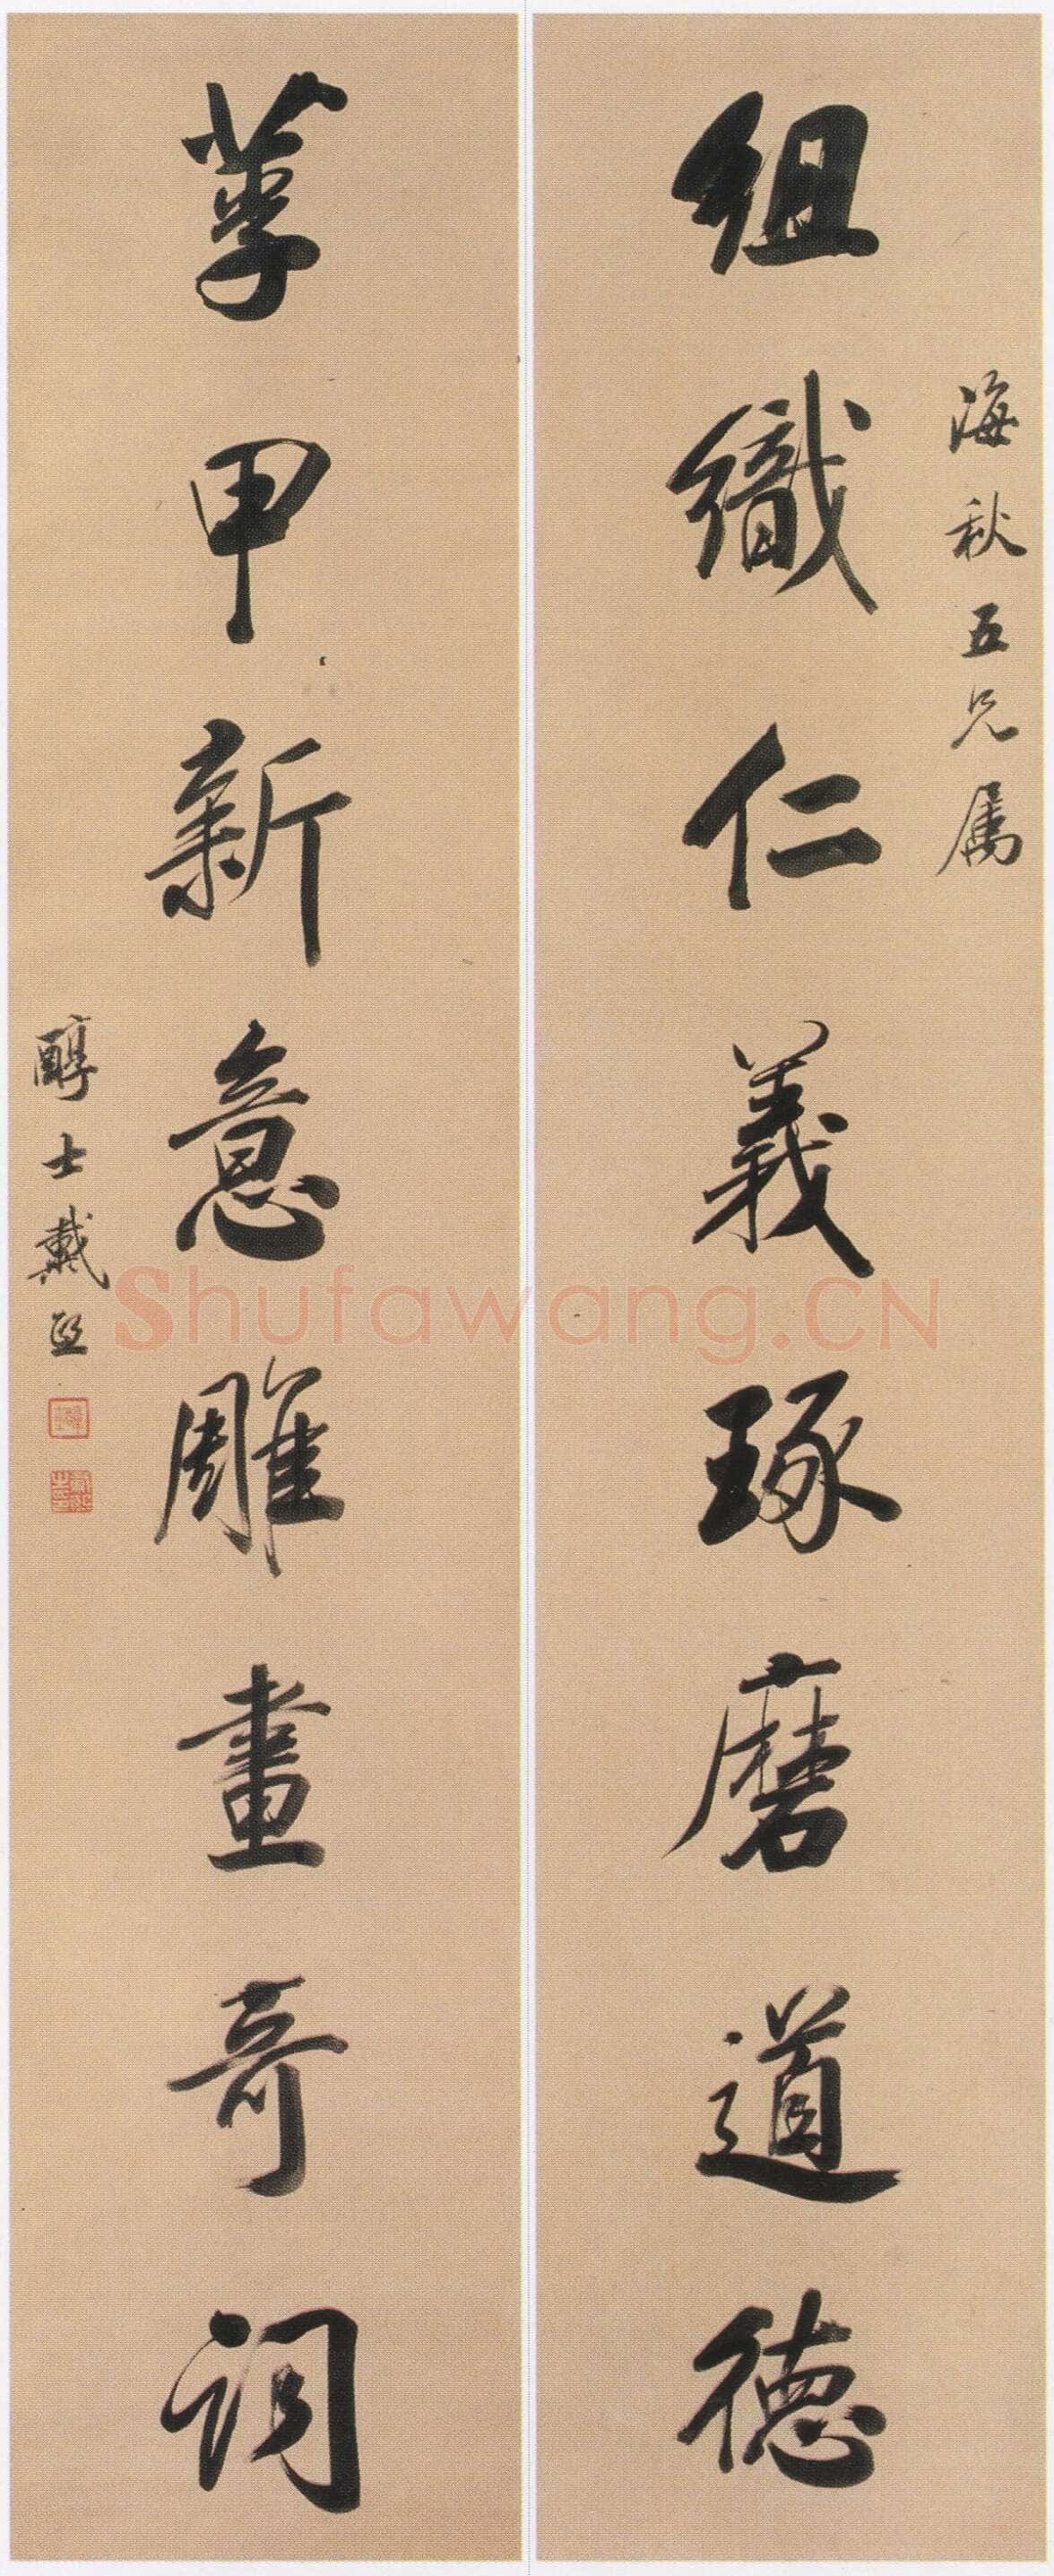 海秋五兄属
組織仁義琢磨道德
莩甲新意雕畫奇詞
醇士戴熙
Shufawang.CN